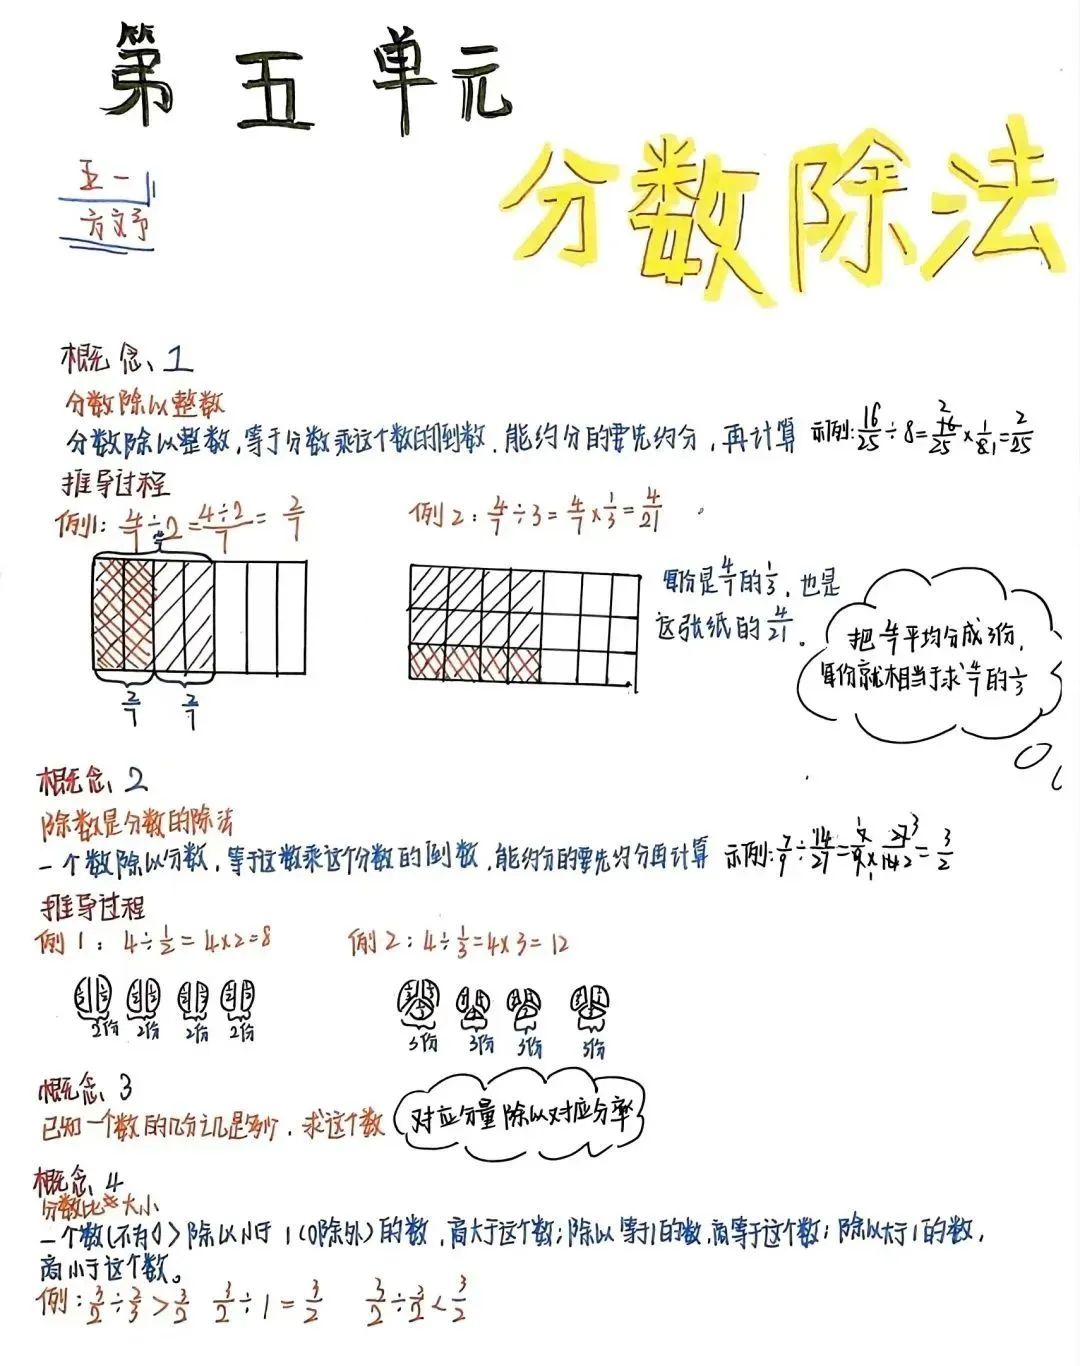 第五单元
分数除法
五一
方文予
概念1
分数除以整数
分数除以整数,等于分数乘这个数的倒数,能约分的要先约分,再计算 示例:16/25÷8=16/25×1/8=2/25
推导过程
例1:4/7÷2=4÷2/7=2/7
例2:4/7÷3=4/7×1/3=4/21
2/7 2/7
每份是4/7的1/3,也是
这张纸的4/21。
把4/7平均分成3份,
每份就相当于求4/7的1/3
概念2
除数是分数的除法
一个数除以分数,等于这数乘这个分数的倒数,能约分的要先约分再计算 示例:7/9÷14/27=7/9×27/14=3/2
推导过程
例1:4÷1/2=4×2=8
例2:4÷1/3=4×3=12
2份 2份 2份 2份
3份 3份 3份 3份
概念3
已知一个数的几分之几是多少,求这个数
对应分量除以对应分率
概念4
分数比大小
一个数(不为0)除以小于1(0除外)的数,商大于这个数;除以等于1的数,商等于这个数;除以大于1的数,
商小于这个数。
例:3/2÷2/3>3/2 3/2÷1=3/2 3/2÷3/2<3/2